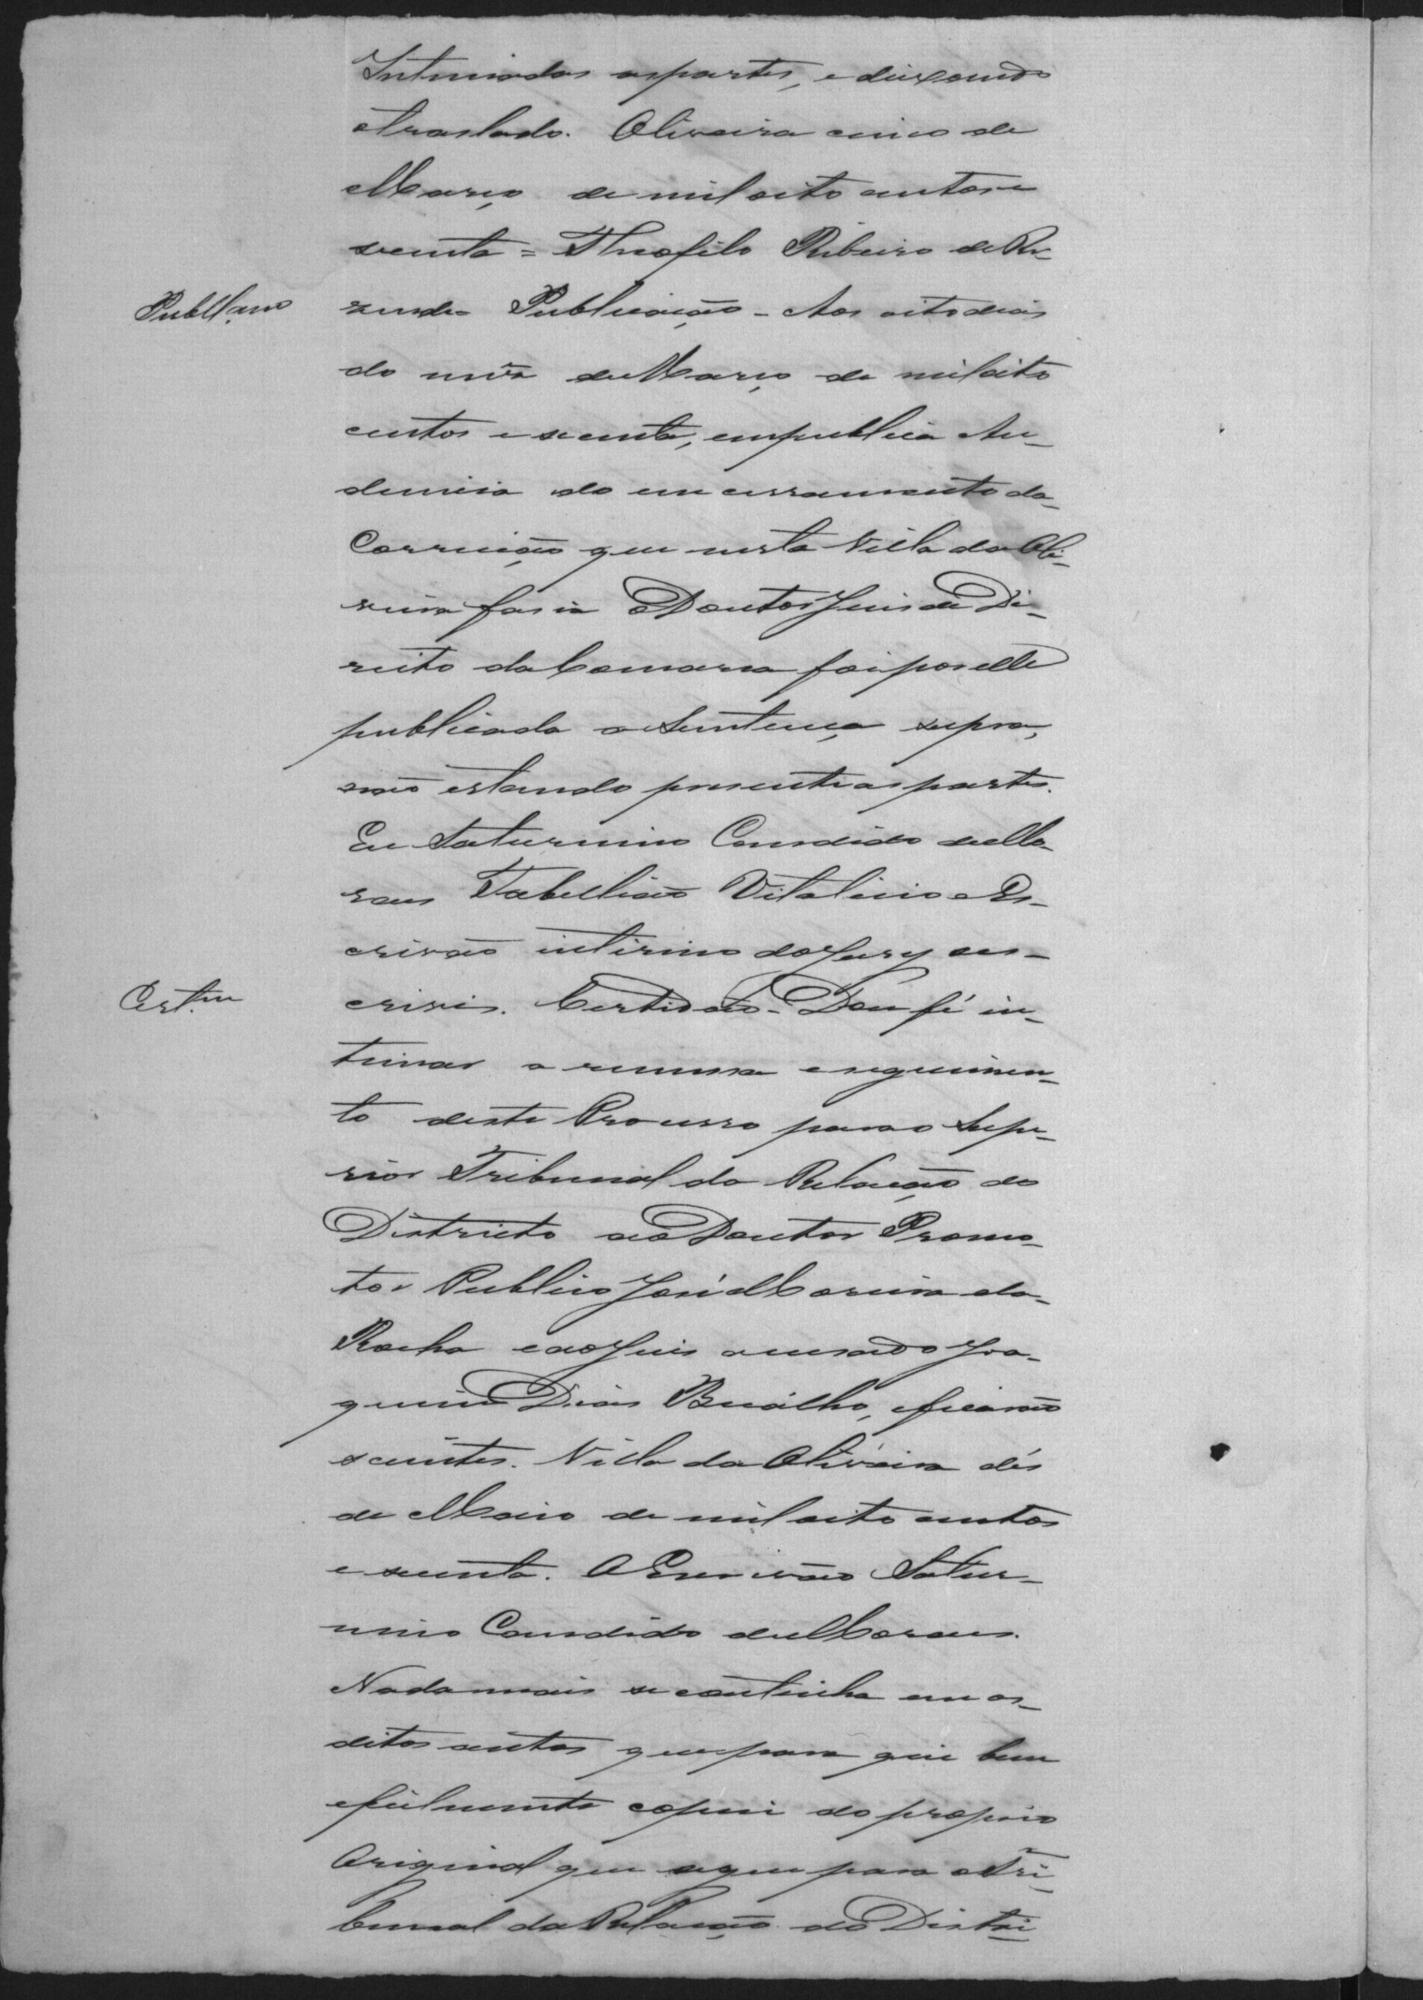 Intimadas as partes, e deixando
o traslado. Oliveira cinco de
Março de mil oito centos e
secenta = Theofilo Ribeiro de Re-
Publ.çam
zende Publicação - Aos oito dias
do mês de Março de mil oito
centos e secenta, em publica Au-
diencia do encerramento da
Correição que nesta Villa da Oli-
veira fasia o Doutor Juis de Di-
reito da Comarca foi por elle
publicada a Sentença supra,
não estando presente as partes.
Eu Saturnino Candido de Mo-
raes Tabellião Vitalicio e Es-
crivão interino do Jury es-
Cert.am
crivi. Certidão - Dou fé in-
timar a remessa e seguimen-
to deste Processo para o Supe-
rior Tribunal da Relação do
Districto ao Doutor Promo-
tor Publico José Moreira da
Rocha e ao Juis accusado Joa-
quim Dias Bicalho, e ficarão
scientes. Villa da Oliveira dés
de Maio de mil oito centos
e secenta. O Escrivão Satur-
nino Candido de Moraes.
Nada mais se continha em os
ditos autos que para qui bem
e fielmente copiei do proprio
Original que segue para o Tri-
bunal da Relação do Distri-